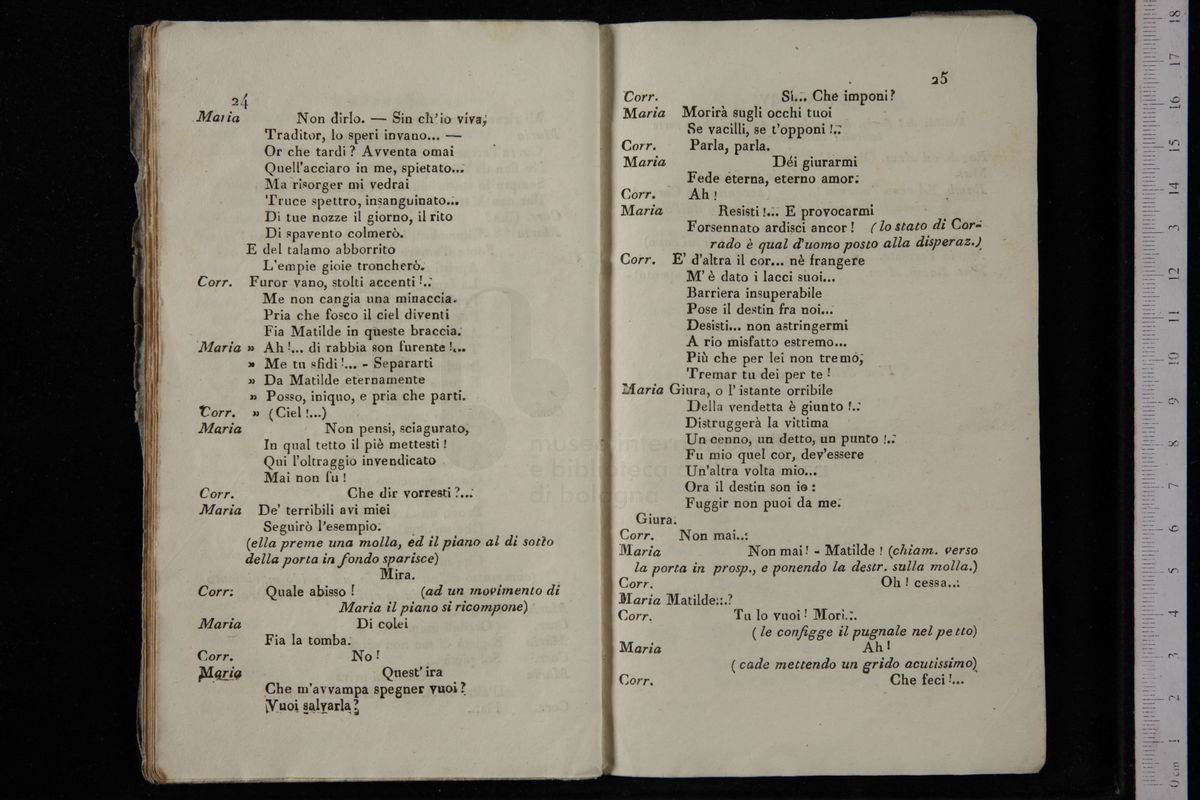 24
Maria Non dirlo. — Sin ch'io viva,
Traditor, lo speri invano... —
Or che tardi? Avventa omai
Quell'acciaro in me, spietato...
Ma risorger mi vedrai
Truce spettro, insanguinato...
Di tue nozze il giorno, il rito
Di spavento colmerò.
E del talamo abborrito
L'empie gioie troncherò.
Corr. Furor vano, stolti accenti!..
Me non cangia una minaccia.
Pria che fosco il ciel diventi
Fia Matilde in queste braccia.
Maria » Ah!... di rabbia son furente!...
» Me tu sfidi!... - Separarti
» Da Matilde eternamente
» Posso, iniquo, e pria che parti.
Corr. » (Ciel!...)
Maria Non pensi, sciagurato,
In qual tetto il piè mettesti!
Qui l'oltraggio invendicato
Mai non fu!
Corr. Che dir vorresti?...
Maria De' terribili avi miei
Seguirò l'esempio.
(ella preme una molla, ed il piano al di sotto
della porta in fondo sparisce)
Mira.
Corr: Quale abisso! (ad un movimento di
Maria il piano si ricompone)
Maria Di colei
Fia la tomba.
Corr. No!
Maria Quest' ira
Che m'avvampa spegner vuoi?
Vuoi salvarla?
25
Corr. Si... Che imponi?
Maria Morirà sugli occhi tuoi
Se vacilli, se t'opponi!..
Corr. Parla, parla.
Maria Déi giurarmi
Fede eterna, eterno amor.
Corr. Ah!
Maria Resisti!... E provocarmi
Forsennato ardisci ancor! (lo stato di Cor-
rado è qual d'uomo posto alla disperaz.)
Corr. E' d'altra il cor... nè frangere
M' è dato i lacci suoi...
Barriera insuperabile
Pose il destin fra noi...
Desisti... non astringermi
A rio misfatto estremo...
Più che per lei non tremo,
Tremar tu dei per te!
Maria Giura, o l' istante orribile
Della vendetta è giunto!..
Distruggerà la vittima
Un cenno, un detto, un punto!..
Fu mio quel cor, dev'essere
Un'altra volta mio...
Ora il destin son io:
Fuggir non puoi da me.
Giura.
Corr. Non mai..:
Maria Non mai! - Matilde! (chiam. verso
la porta in prosp., e ponendo la destr. sulla molla.)
Corr. Oh! cessa..:
Maria Matilde::.?
Corr. Tu lo vuoi! Mori...
(le configge il pugnale nel petto)
Maria Ah!
(cade mettendo un grido acutissimo)
Corr. Che feci!...
museo intern
e biblioteca d a
di bologna
0 cm 1 2 3 4 5 6 7 8 9 10 11 12 13 14 15 16 17 18